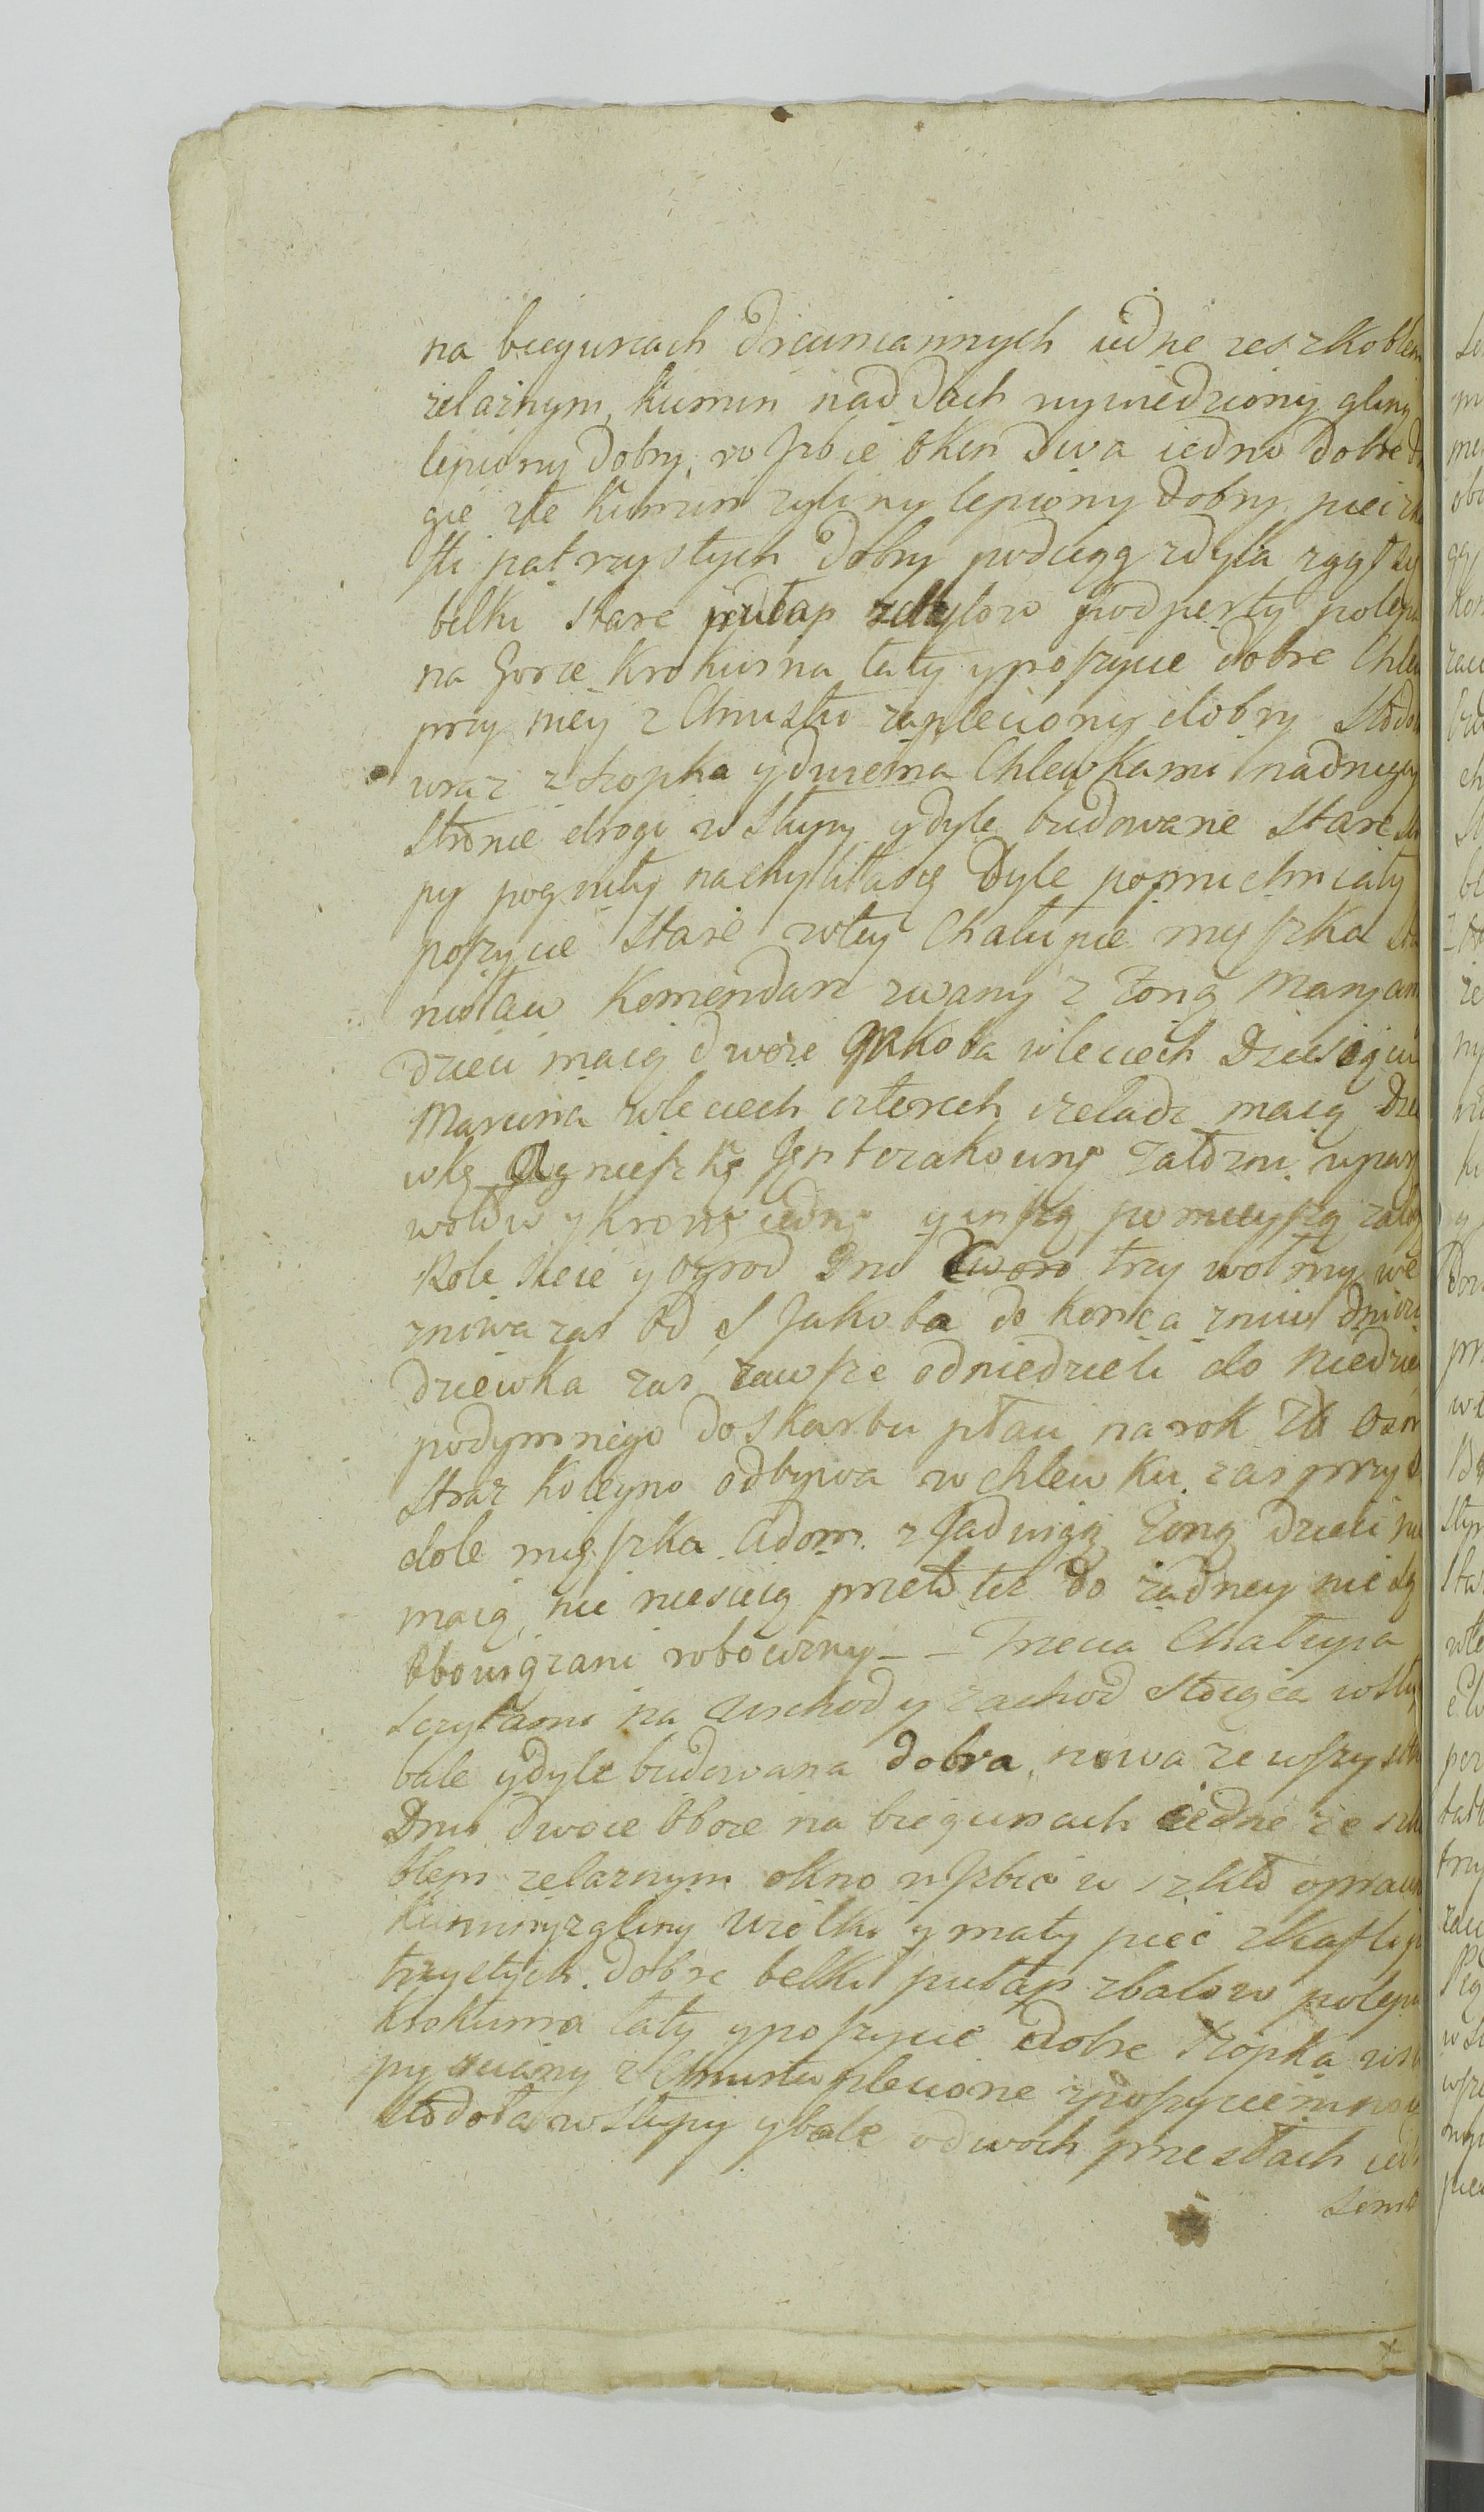 na biegunach drewniannych iedne ze szkoblem
zelaznym, kumin nad dach wywiedziony gliną
lepiony dobry, w Jzbie Okien dwa iedno dobre d
gie złe kumin z gliny lepiony dobry piec z ka
fli patrzystych dobry podciąg z dyla zgęsty
belki stare pułap z dylow podperty polep
na Gorze Krokwi na łaty y poszycie dobre Chle
przy niey z Chrustu zapleciony dobry Stodo
wraz z szopka y dwiema Chlewkami nad
stronie drogi w słupy y dyle budowane stare słu
py pogniły nachyliła się Dyle popruchniały
poszycie stare w tey Chałupie mięszka Sta
nisław Komendan zwany z Żoną Maryann
dzieci maią dwoie Jakoba w leciech Dziesięciu
Maryna w leciech czterech czeladź maią Dzie
wkę Agnieszkę Załogi parę
wołow y Krowę iednę y inszą pomieyszą załog
Role sieie y ogrod Dni trzy wołmi we
zniwa zas Od S Jakoba do konca zniw Dni
dziewka zas zawsze od niedzieli do niedziel
podymnego do skarbu płaci na rok Zł Osm
Straz koleyno odbywa w chlewku zas przy sto
dole mięszka Adam z Jadwigą Żoną dzieci nie
maią, nie niesieią przeto tez do zadney nie są
Obowiązani robocizny – – Trzecia Chałupa
sczytami na Wschod y zachod stoiąca w słu
bale y dyle budowana dobra, nowa ze wszystk
Drzwi dwoie Oboie na biegunach iedne ze szko
blem zelaznym okno w Jzbie w szkło opraw
Kuminy z gliny wielki y mały piec z kafli p
trzystych dobre belki pułap z balow polep
Krokwi na łaty y poszycie dobre szopka w słu
py sciany z Chrustu plecione z poszyciem
Stodoła w słupy y bale o dwoch przesłach ied